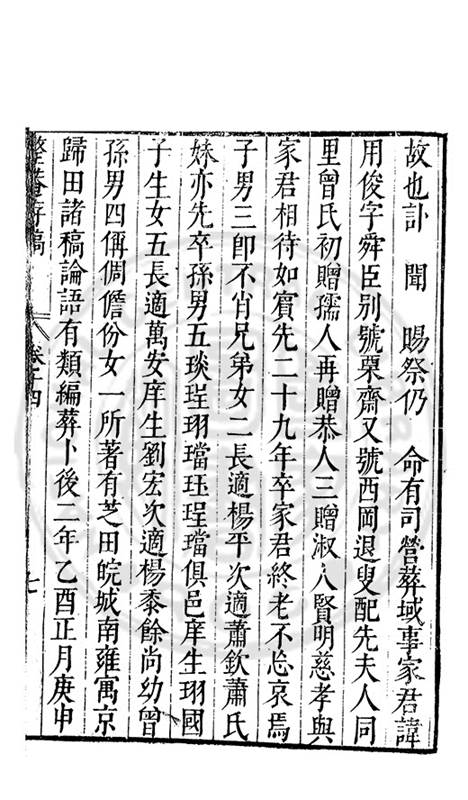 故也訃　聞　賜祭仍　命有司營葬域事家君諱
用俊字舜臣别號栗齋又號西岡退叟配先夫人同
里曾氏初贈孺人再贈恭人三贈淑人賢明慈孝與
家君相待如賓先二十九年卒家君終老不忘哀焉
子男三即不肖兄弟女二長適楊平次適蕭欽蕭氏
妹亦先卒孫男五琰珵珝璫珏珵璫俱邑庠生珝國
子生女五長適萬安庠生劉宏次適楊黍餘尚幼曾
孫男四偁倜儋份女一所著有芝田皖城南雍寓京
歸田諸稿論語有類編葬卜後二年乙酉正月庚申
整菴存稿　卷十四　七